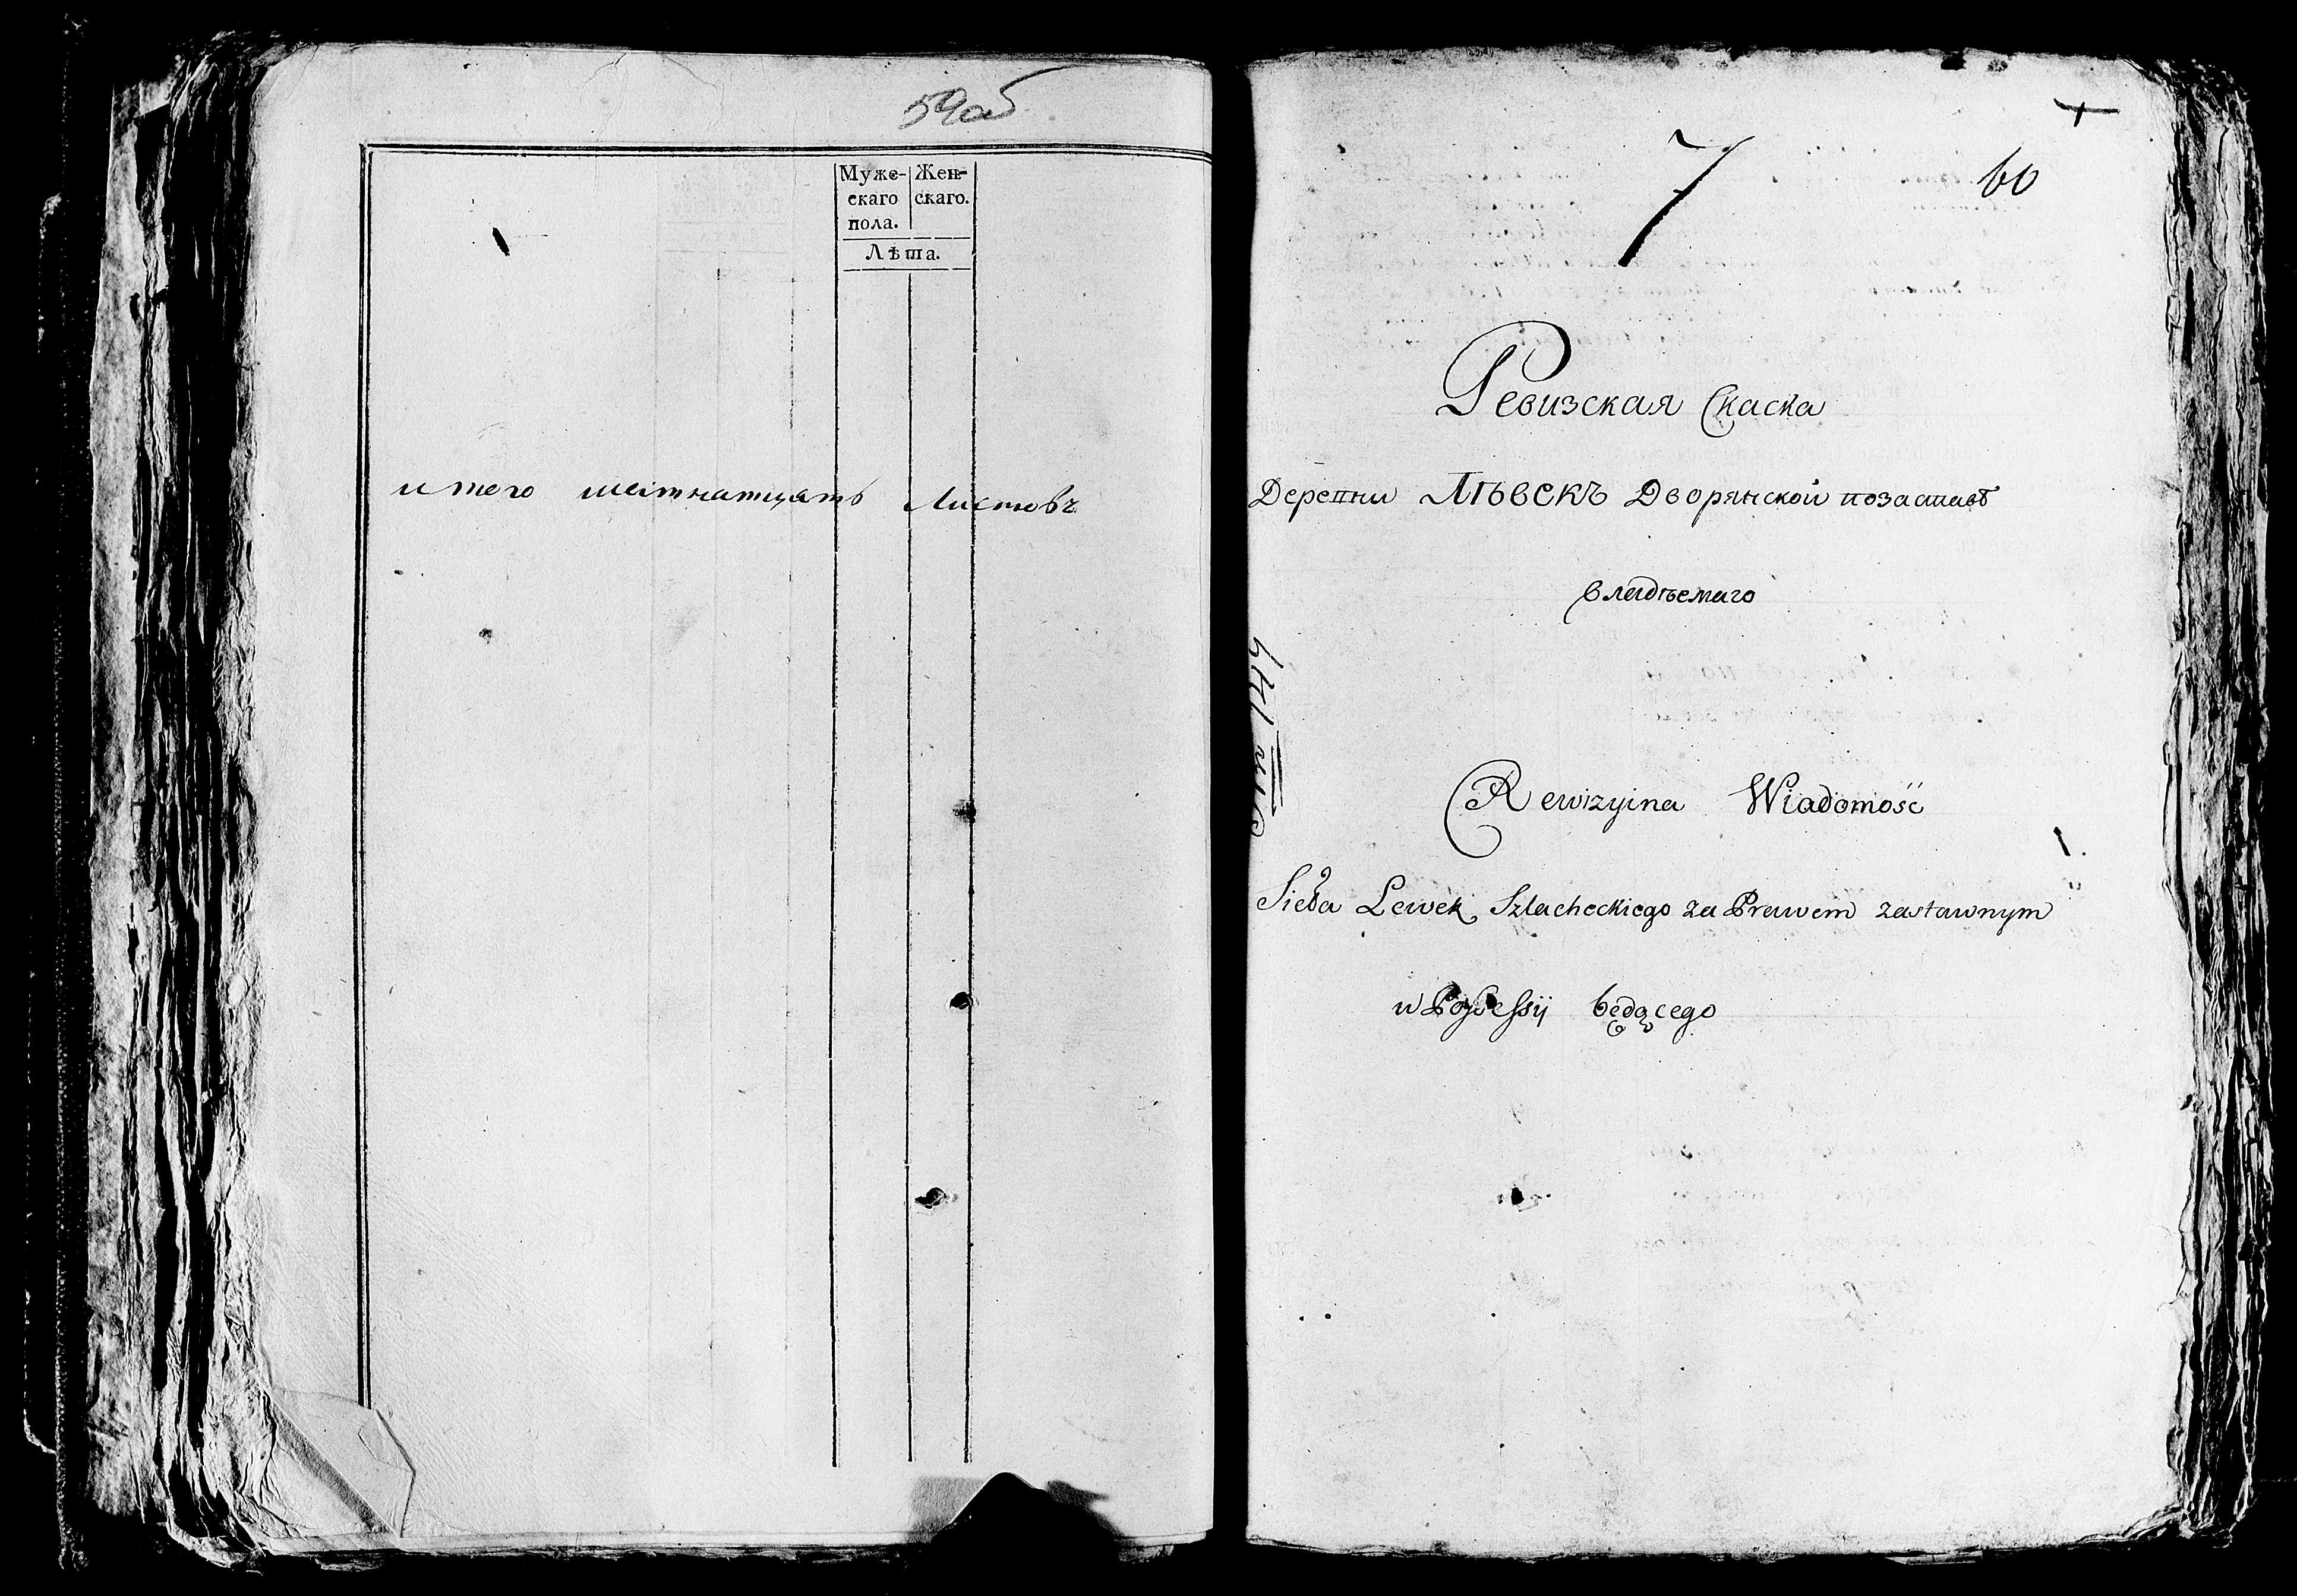 59об
Муже- Жен-
скаго скаго.
пола.
Лѣта.
итого шестнатцать Листовъ
7
60
Ревизская Скаска
Деревни Лѣвекъ Дворянской позаставѣ
владѣемаго
Rewizyina Wiadomość
Sioła Lewek Szlacheckiego za Prawem zastawnym
w Possessij będącego